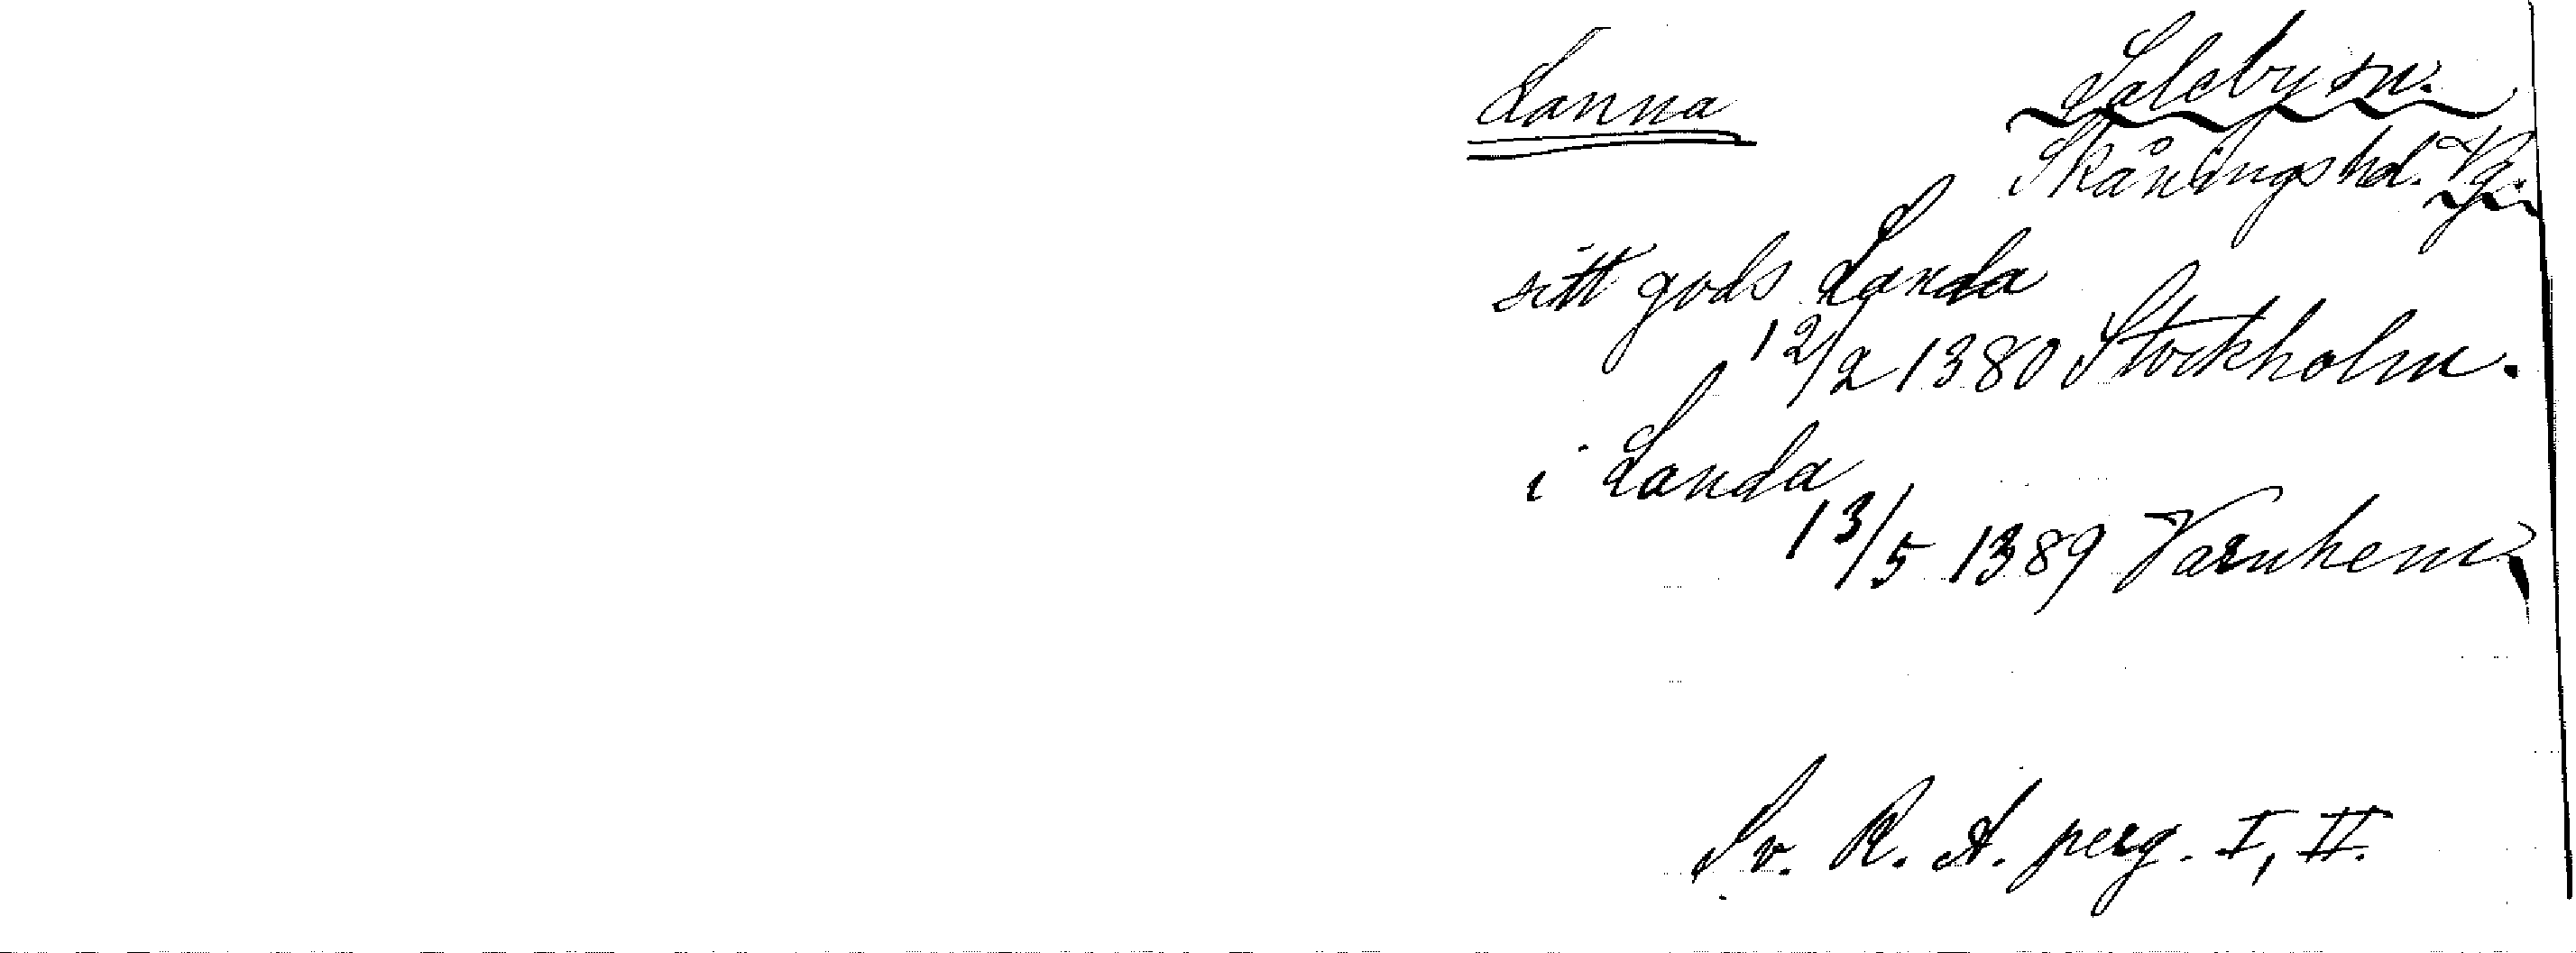 Lanna
Saleby sn.
Skånings hd. Vg.
sitt gods Landa
12/2 1380 Stockholm.
i Landa
13/5 1389 Varnhem
Sv. R. A. perg. I, II.